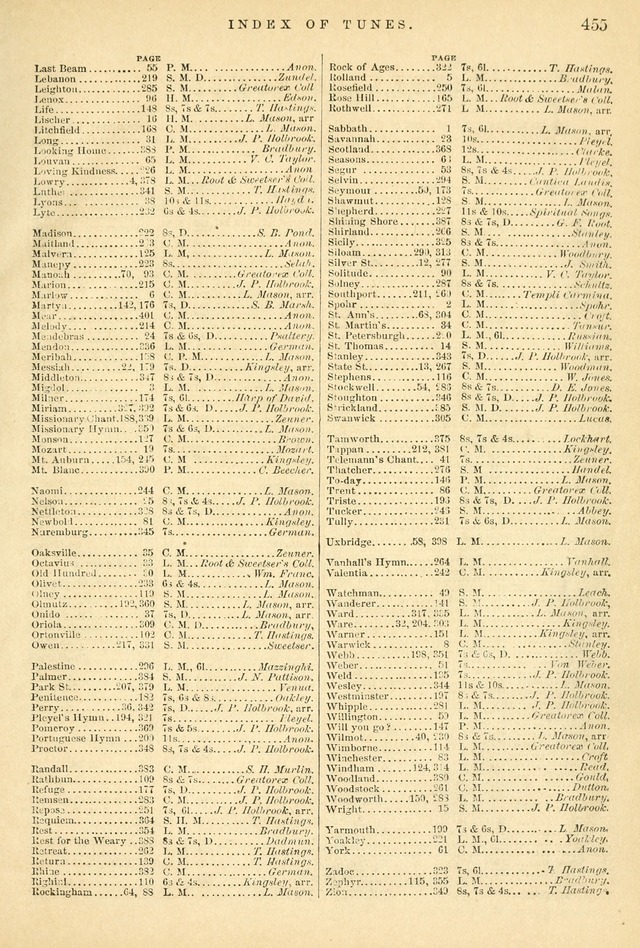 INDEX OF TUNES. 455
PAGE
Last Beam .......... 55 P. M. .......... Anon.
Lebanon .......... 219 S. M. D. .......... Zundel.
Leighton .......... 285 S. M. .......... Greatorex Coll
Lenox .......... 96 H. M. .......... Edson.
Life .......... 148 8s, 7s & 7s. .......... T. Hastings.
Lischer .......... 16 H. M. .......... L. Mason, arr
Litchfield .......... 168 C. M. .......... L. Mason.
Long .......... 31 L. M. .......... J. P. Holbrook.
Looking Home .......... 388 P. M. .......... Bradbury.
Louvan .......... 65 L. M. .......... V. C. Taylor.
Loving Kindness. L. M. .......... Anon
Lowry .......... 4, 378 L. M. .......... Root & Sweetser's Coll.
Luther .......... 341 S. M. .......... T. Hastings.
Lyons .......... 38 10s & 11s .......... Haydn.
Lyte .......... 232 6s & 4s. .......... J. P. Holbrook.
Madison .......... 222 8s, D. .......... S. B. Pond.
Maitland .......... C. M. .......... Anon.
Malvern .......... 125 L. M. .......... L. Mason.
Manepy .......... 223 8s. ..........
Manoah .......... 70, 93 C. M. .......... Greatorex Coll.
Marion .......... 215 C. M. .......... J. P. Holbrook.
Marlow .......... 6 C. M. .......... L. Mason, arr.
Martyn .......... 142, 176 7s, D. .......... S. B. Marsh.
Mear .......... 401 C. M. .......... Anon.
Melody .......... 214 C. M. .......... Anon.
Mendebras .......... 24 7s & 6s, D. .......... Psaltery.
Mendon .......... 336 L. M. .......... German.
Meribah .......... 158 C. P. M. .......... L. Mason.
Messiah .......... 22, 179 7s, D. .......... Kingsley, arr.
Middleton .......... 347 8s & 7s, D. .......... Anon.
Migdol .......... 3 L. M. .......... L. Mason.
Milner .......... 174 7s, 6l. .......... Harp of David.
Miriam .......... 7s & 6s, D. .......... J. P. Holbrook.
Missionary Chant. 188, 339 L. M. .......... Zeuner.
Missionary Hymn. 7s & 6s, D. .......... L. Mason.
Monson .......... 127 C. M. .......... Brown.
Mozart .......... 19 7s. .......... Mozart.
Mt. Auburn .......... 154, 245 C. M. .......... Kingsley.
Mt. Blanc .......... 390 P. M. .......... C. Beecher.
Naomi .......... 244 C. M. .......... L. Mason.
Nelson .......... 8s, 7s & 4s. .......... J. P. Holbrook.
Nettleton .......... 328 8s & 7s, D. .......... Anon.
Newbold .......... 81 C. M. .......... Kingsley.
Nuremburg .......... 345 7s. .......... German.
Oaksville .......... 35 C. M. .......... Zeuner.
Octavius .......... 33 L. M. .......... Root & Sweetser's Coll.
Old Hundred .......... L. M. .......... Wm. Franc.
Olivet .......... 233 6s & 4s. .......... L. Mason.
Olney .......... 119 S. M. .......... L. Mason.
Olmutz .......... 192, 360 S. M. .......... L. Mason, arr.
Onido .......... 37 7s, D. .......... L. Mason, arr.
Oriola .......... 309 C. M. D. .......... Bradbury,
Ortonville .......... 102 C. M. .......... T. Hastings.
Owen .......... 217, 331 S. M. .......... Sweetser.
Palestine .......... 296 L. M., 6l. .......... Mazzinghi.
Palmer .......... 384 S. M. .......... J. N. Pattison.
Park St. .......... 207, 379 L. M. .......... Venua.
Penitence .......... 182 7s, 6s & 8s. .......... Oakley.
Perry .......... 36, 342 7s, D. .......... J. P. Holbrook, arr.
Pleyel's Hymn .. 194, 321 7s. .......... Pleyel.
Pomeroy .......... 369 7s & 5s. .......... J. P. Holbrook.
Portuguese Hymn .. 200 11s. .......... Anon.
Proctor .......... 348 8s, 7s & 4s. .......... J. P. Holbrook.
Randall .......... 383 C. M. .......... S. H. Murlin.
Rathbun .......... 109 8s & 7s. .......... Greatorex Coll.
Refuge .......... 177 7s, D. .......... J. P. Holbrook.
Remsen .......... 283 C. M. .......... J. P. Holbrook.
Repose .......... 251 7s, 6l. .......... J. P. Holbrook, arr.
Requiem .......... 364 S. H. M. .......... T. Hastings.
Rest .......... 354 L. M. .......... Bradbury.
Rest for the Weary .. 388 8s & 7s, D. .......... Dadmun.
Retreat .......... 262 L. M. .......... T. Hastings.
Return .......... 139 C. M. .......... T. Hastings.
Rhine .......... 382 C. M. .......... German.
Righini .......... 110 6s & 4s. .......... Kingsley, arr.
Rockingham .......... 64, 88 L. M. .......... L. Mason.
PAGE
Rock of Ages .......... 322 7s, 6l. .......... T. Hastings.
Rolland .......... 5 L. M. .......... Bradbury.
Rosefield .......... 250 7s, 6l. .......... Malan.
Rose Hill .......... 165 L. M. .......... Root & Sweetser's Coll.
Rothwell .......... 271 L M. .......... L Mason, arr.
Sabbath .......... 1 7s, 6l. .......... L. Mason, arr,
Savannah .......... 23 10s. .......... Pleyel.
Scotland .......... 368 12s. .......... Clarke.
Seasons .......... L. M. .......... Pleyel.
Segur .......... 53 8s, 7s & 4s. .......... J. P. Holbrook.
Selvin .......... 294 S. M. .......... Cantica Laudis.
Seymour .......... 50, 173 7s. .......... Greatorex Coll.
Shawmut .......... 128 S. M. .......... L. Mason.
Shepherd .......... 227 11s & 10s. .......... Spiritual Songs.
Shining Shore .......... 387 8s & 7s, D. .......... G. F. Root.
Shirland .......... 266 S. M. .......... Stanley.
Sicily .......... 325 8s & 7s. .......... Anon.
Siloam .......... 290, 313 C. M. .......... Woodbury.
Silver St. .......... 12, 277 S. M. .......... J. Smith.
Solitude .......... 90 L. M. .......... V. C. Taylor.
Solney .......... 287 8s & 7s. .......... Schultz.
Southport .......... C. M. .......... Templi Carmina.
Spohr .......... 2 L. M. .......... Spohr.
St. Ann's .......... 68, 304 C. M. .......... Croft.
St. Martin's .......... 34 C. M. .......... Tansur.
St. Petersburgh .......... L. M., 6l .......... Russian.
St. Thomas .......... 14 S. M. .......... Williams.
Stanley .......... 343 7s, D. .......... J. P. Holbrook, arr.
State St. .......... 13, 267 S. M. .......... Woodman.
Stephens .......... 116 C. M. .......... W. Jones.
Stockwell .......... 54, 286 8s & 7s. .......... D. E. Jones.
Stoughton .......... 346 8s & 7s, D. .......... J. P. Holbrook.
Strickland .......... 385 S. M. D. .......... J. P. Holbrook.
Swanwick .......... 305 C. M. .......... Lucas.
Tamworth .......... 375 8s, 7s & 4s. .......... Lockhart.
Tappan .......... 212, 381 C. M. .......... Kingsley.
Telemann's Chant .. 41 7s. .......... Zeuner.
Thatcher .......... 276 S. M .......... Handel.
To-day .......... 146 P. M. .......... L. Mason.
Trent .......... 86 C. M. .......... Greatorex Coll
Triste .......... 193 8s & 7s, D. .......... J. P. Holbrook.
Tucker .......... 246 S. M. .......... Abbey.
Tully .......... 231 7s & 6s, D. .......... L. Mason.
Uxbridge .......... 58, 398 L. M. .......... L. Mason.
Vanhall's Hymn .......... 264 L. M. .......... Vanhall.
Valentia .......... 242 C. M. .......... Kingsley, arr.
Watchman .......... 49 S. M. .......... Leach.
Wanderer .......... 141 S. M. .......... J. P. Holbrook,
Ward .......... 317, 355 L. M. .......... L. Mason, arr.
Ware .......... 32, 204, 303 L. M. .......... Kingsley.
Warner .......... 151 L. M. .......... Kingsley, arr.
Warwick .......... 8 C. M. .......... Stanley.
Webb .......... 198, 351 7s & 6s, D. .......... Webb.
Weber .......... 51 7s. .......... Von Weber.
Weld .......... 135 7s. .......... J. P. Holbrook.
Wesley .......... 344 11s & 10s. .......... L. Mason.
Westminster .......... 197 8s & 7s. .......... J. P. Holbrook.
Whipple .......... 281 L. M. .......... J. P. Holbrook.
Willington .......... 59 L. M. .......... Greatorex Coll.
Will you go? .......... 147 P. M. .......... Anon.
Wilmot .......... 8s & 7s. .......... L. Mason, arr
Wimborne .......... 114 L. M. .......... Greatorex Coll.
Winchester .......... 83 L. M. .......... Croft
Windham .......... 124, 314 L. M. .......... Read.
Woodland .......... 389 C. M. .......... Gould,
Woodstock .......... 261 C. M. .......... Dutton.
Woodworth .......... 150, 283 L. M. .......... Bradbury.
Wright .......... 15 S. M. .......... J. P. Holbrook.
Yarmouth .......... 199 7s & 6s, D. .......... L Mason.
Yoakley .......... 221 L. M., 6l. .......... Yoakley.
York .......... 61 C. M. .......... Anon.
Zadoc .......... 323 7s, 6l. .......... Hastings.
Zephyr .......... 115, 355 L. M. .......... Bradbury.
Zion .......... 349 8s, 7s & 4s. .......... T. Hastings,